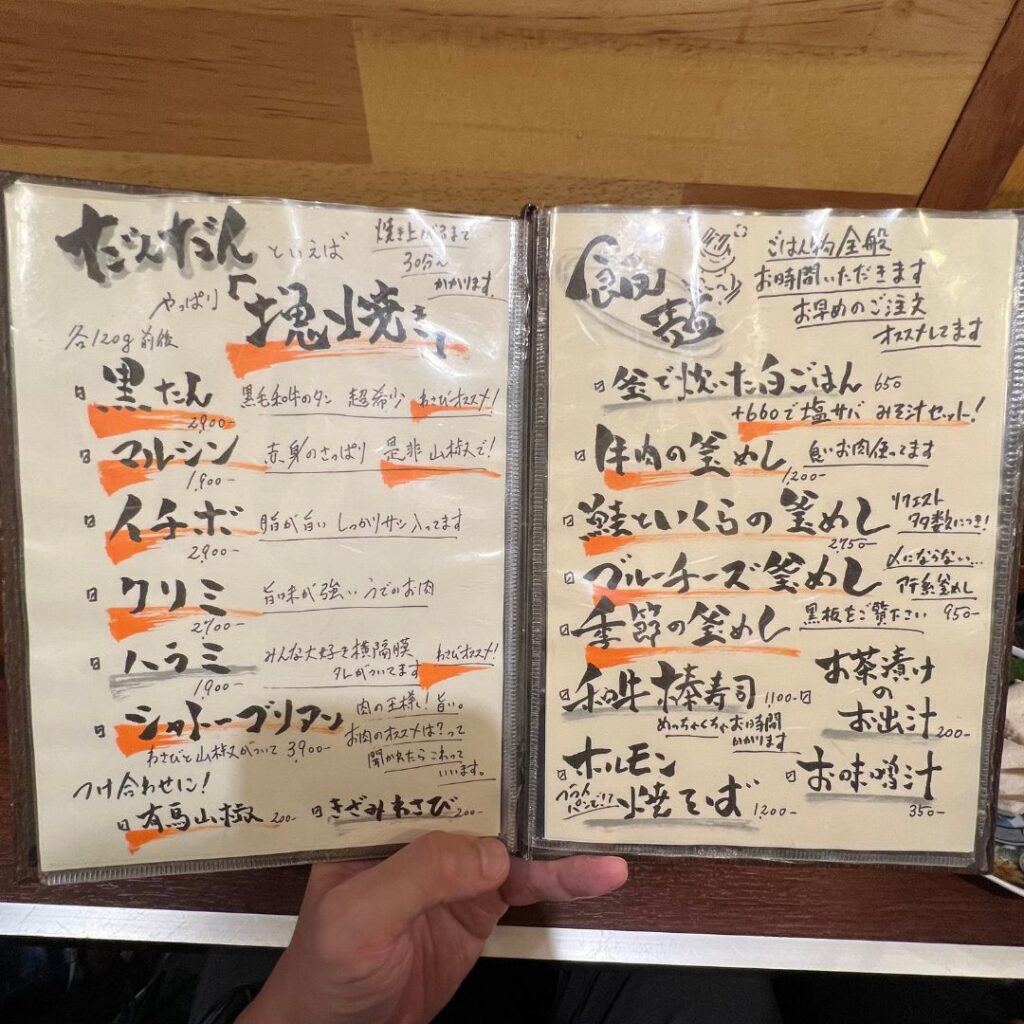 だんだん といえば
やっぱり「塊焼き」
焼き上がるまで
30分〜
かかります。
各120g前後
黒たん 2,900-
黒毛和牛のタン 超希少 わさびオススメ!
マルシン 1,900-
赤身のさっぱり 是非 山椒で!
イチボ 2,900-
脂が旨い しっかりサシ入ってます
クリミ 2,700-
旨味が強い うでのお肉
ハラミ 1,900-
みんな大好き横隔膜
タレがついてます わさびオススメ!
シャトーブリアン
わさびと山椒がついて 3,900-
肉の王様! 旨い。
お肉のオススメは?って
聞かれたらこれって
いいます。
つけ合わせに!
有馬山椒 200-
きざみわさび 200-
ごはん物全般
お時間いただきます
お早めのご注文
オススメしてます
釜で炊いた白ごはん 650
+660で塩サバ みそ汁セット!
牛肉の釜めし 1,200-
良いお肉使ってます
鮭といくらの釜めし 2,750-
リクエスト
多数につき!
ブルーチーズ釜めし
〆にならない…
釜めし 950-
季節の釜めし 黒板をご覧下さい
和牛棒寿司 1,100-
めっちゃくちゃお時間
かかります
お茶漬け
の
お出汁 200-
ホルモン
フライパンで!?
焼そば 1,200-
お味噌汁
350-